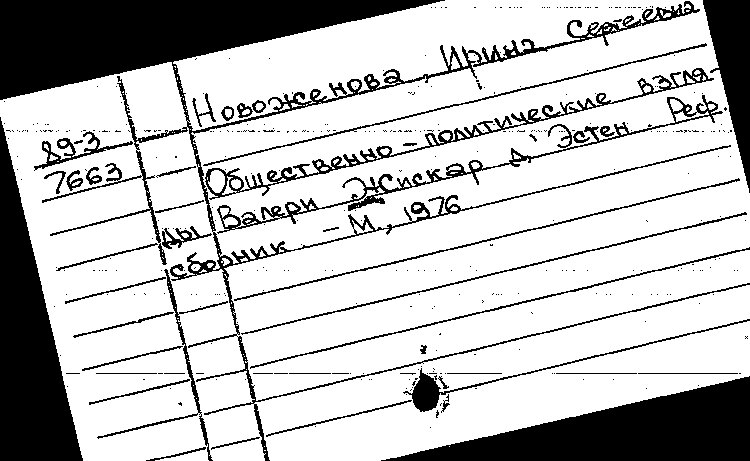 Новоженова, Ирина Сергеевна
89-3
7663
Общественно-политические взгля-
ды Валери Жискар д'Эстен. Реф.
сборник. - М., 1976